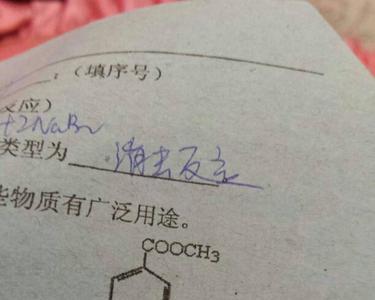 ；（填序号）
反应）
+2NaBr
类型为 消去反应
些物质有广泛用途。
COOCH₃